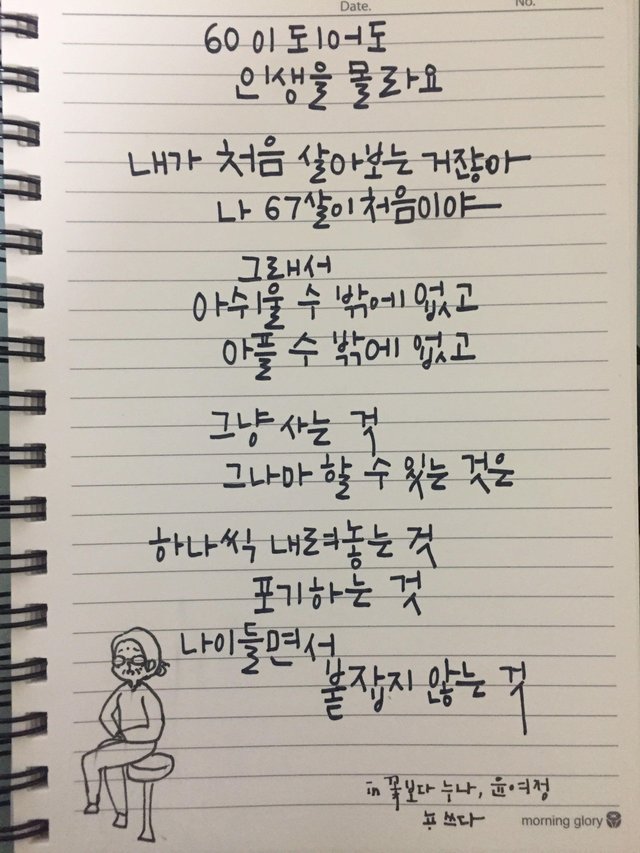 Date.
No.
60이 되어도
인생을 몰라요
내가 처음 살아보는 거잖아
나 67살이 처음이야
그래서
아쉬울 수 밖에 없고
아플 수 밖에 없고
그냥 사는 것
그나마 할 수 있는 것은
하나씩 내려놓는 것
포기하는 것
나이들면서
붙잡지 않는 것
in 꽃보다 누나, 윤여정
쓰다
morning glory